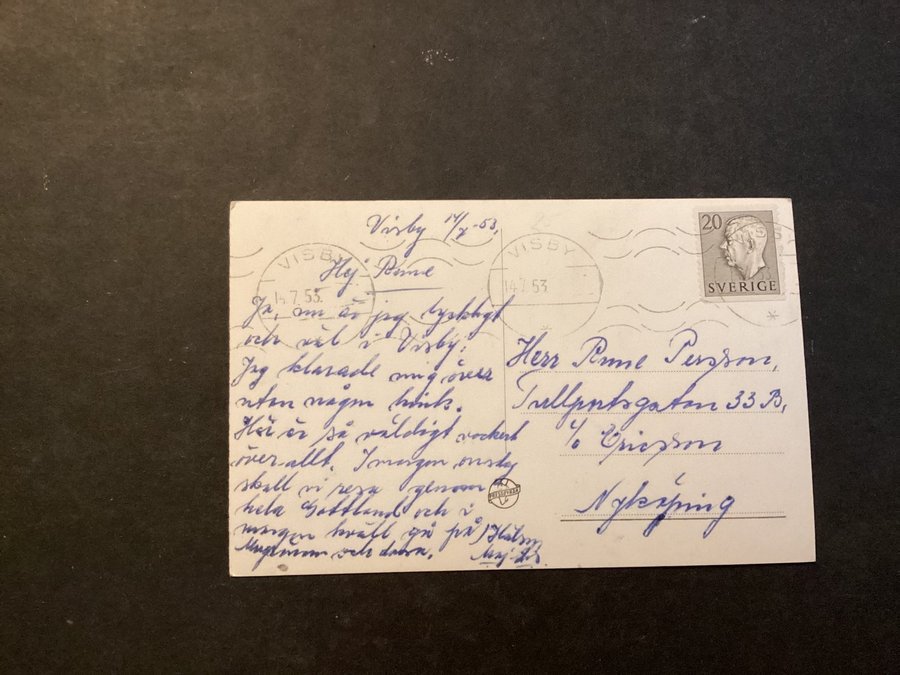 Visby 14/7-53.
VISBY
14.7.53.
VISBY
14.7.53
20
SVERIGE
Hej Rune
Ja, nu är jag lyckligt
och väl i Visby.
Jag klarade mig över
utan någon
Här är så väldigt vackert
överallt. I morgon onsdag
skall vi resa genom
hela Gottland och i
morgon kväll gå på
och dansa.
Hälsn
Maj-Lis
Herr Rune Persson,
Tullportsgatan 33 B,
c/o Ericsson
Nyköping